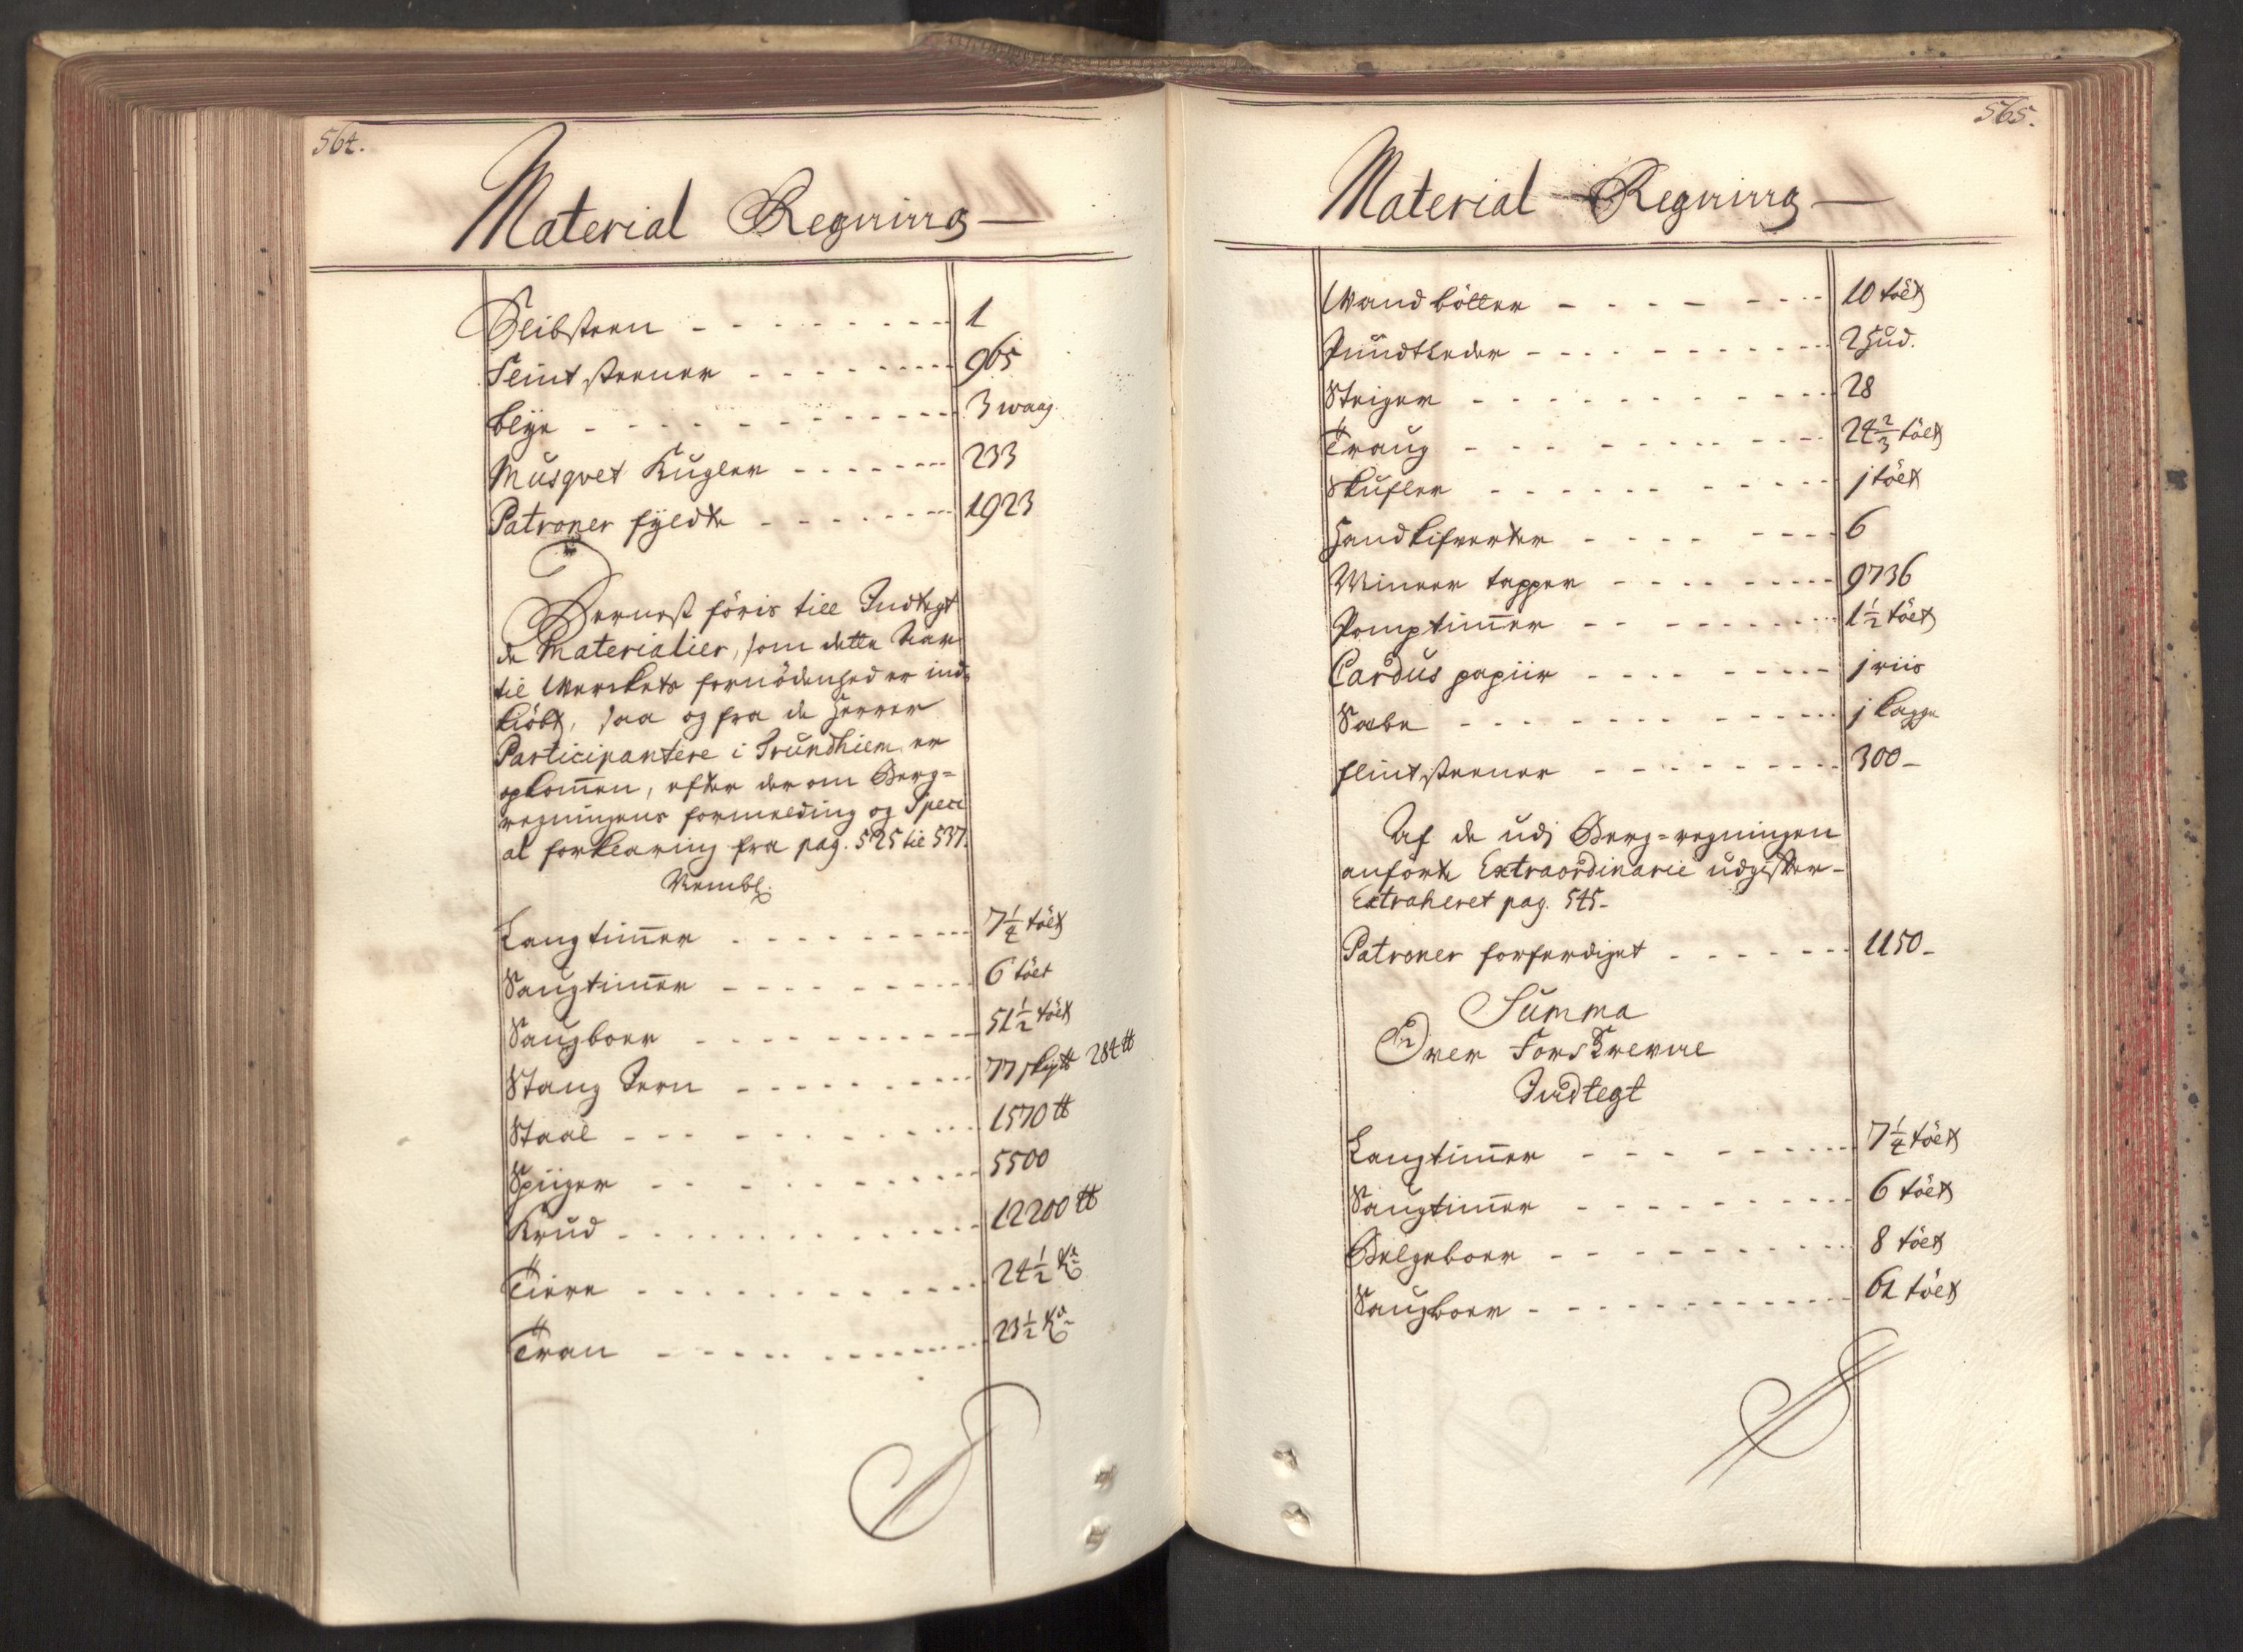 564.
Material Regning
Slibsteen - - - - - - - - 1
Flintsteener - - - - - - - - 965
blye - - - - - - - - - - 3 waag
Musqvet Kugler - - - - - - - 233
Patroner fyldte - - - - - - - 1923
Dernest föris till Indtegt
de Materialier, som dette Aar
til Werckets fornödenheder ind-
kiöbt, saa og fra de Herrer
Participantere i Trundhiem er
opkom̅en, efter der om Berg-
regningens formelding og Speci
al forklaring fra pag. 525 til 537.
Nembl.
Langtim̅er - - - - - - - - 7 1/4 töelt
Saugtim̅er - - - - - - - - 6 töelt
Saugboer - - - - - - - - - 51 1/2 töelt
Stang Jern - - - - - - - - 77 skp℔ 284 ℔
Staal - - - - - - - - - - 1570 ℔
Spiiger - - - - - - - - - 5500
Krud - - - - - - - - - - 12200 ℔
Tiere - - - - - - - - - - 24 1/2
Tran - - - - - - - - - - 23 1/2
565.
Material Regning
Wandbötter - - - - - - - - 10 töelt
Pundtleder - - - - - - - - 2 Hud.
Steiger - - - - - - - - - - 28
Traug - - - - - - - - - 24 2/3 tölt
Skufler - - - - - - - - - j töelt
Handkifverter - - - - - - - 6
Mineer tapper - - - - - - - 9736
Pomptim̅er - - - - - - - - 1 1/2 töelt
Cardus papiir - - - - - - - j riis
Sæbe - - - - - - - - - - j kagge
flintsteener - - - - - - - - 300
Af de udj Berg-regningen
anförte Extraordinarie udgifter
Extraheret pag. 545
Patroner forferdiget - - - - - - 1150
Summa
Over Forskrevne
Indtegt
Langtim̅er - - - - - - - - 7 1/4 töelt
Saugtim̅er - - - - - - - - 6 töelt
Belgeboer - - - - - - - - 8 töelt
Saugboer - - - - - - - - - 61 töelt